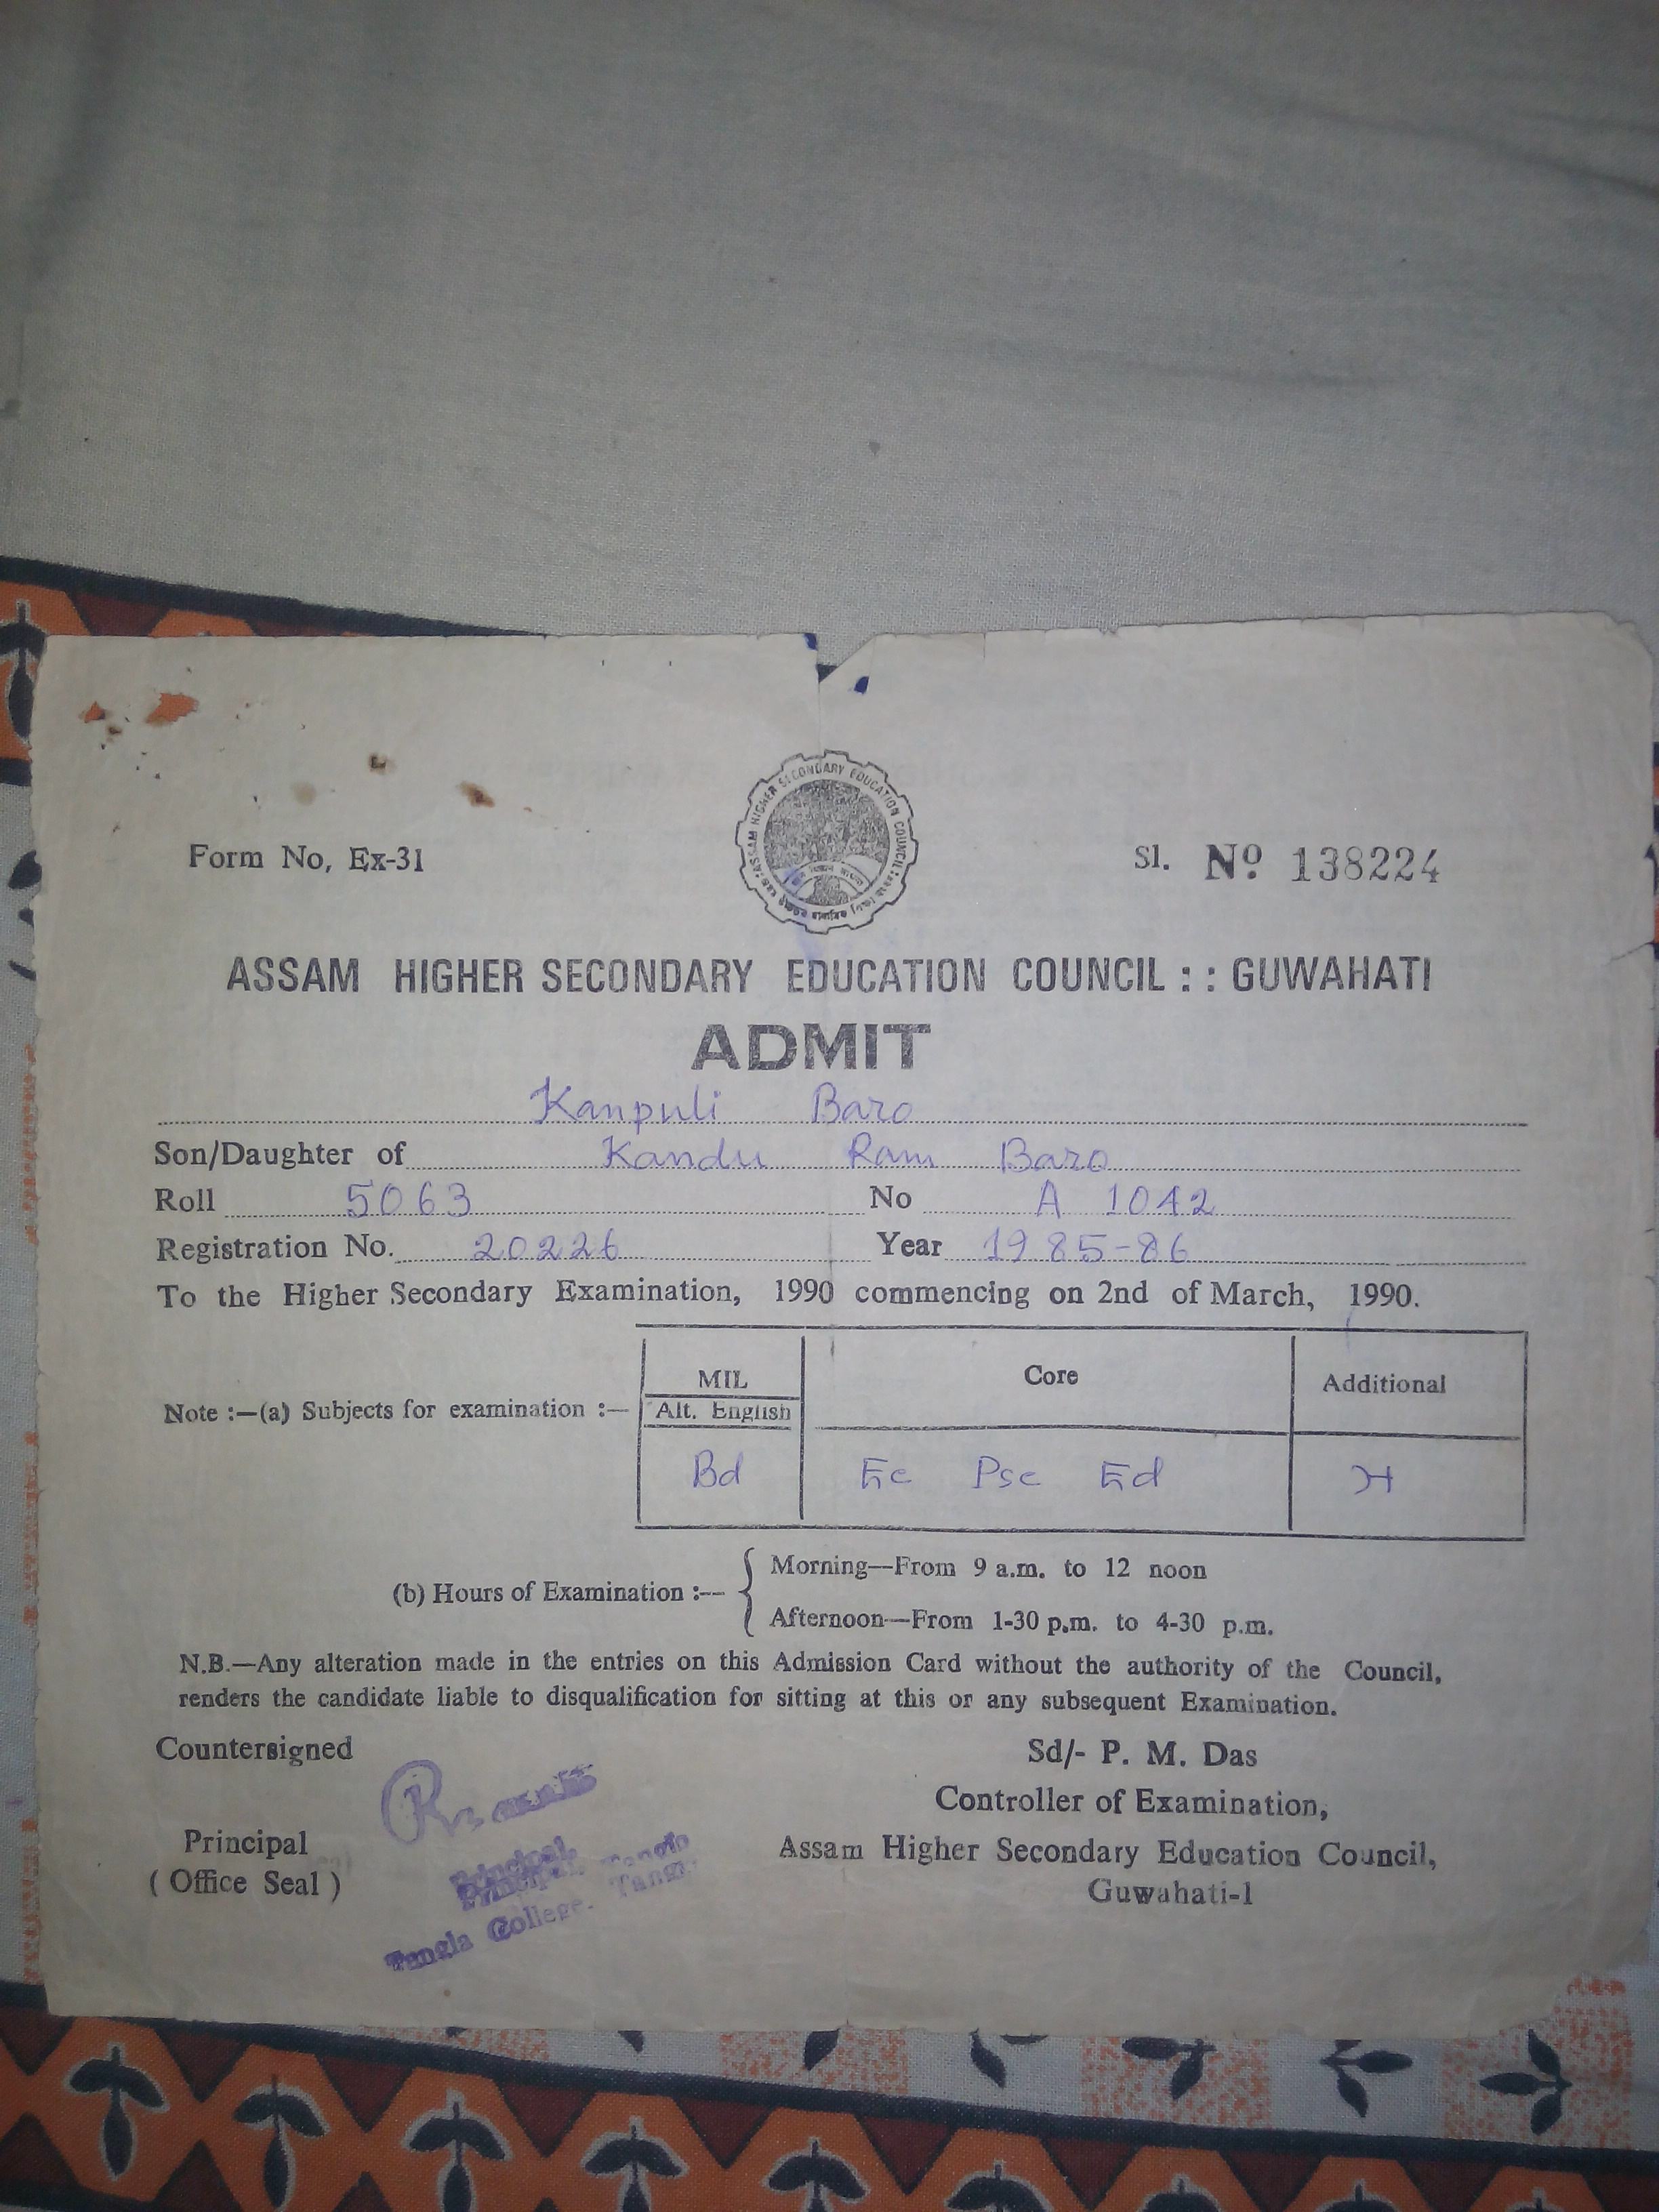 ASSAM HIGHER SECONDARY EDUCATION COUNCIL
Form No, Ex-31 Sl. Nº 138224
ASSAM HIGHER SECONDARY EDUCATION COUNCIL : : GUWAHATI
ADMIT
Kanpuli Baro
Son/Daughter of Kandu Ram Baro
Roll 5063 No A 1042
Registration No. 20226 Year 1985-86
To the Higher Secondary Examination, 1990 commencing on 2nd of March, 1990.
MIL Core Additional
Note :—(a) Subjects for examination :— Alt. English
Bd Ec Psc Ed H
(b) Hours of Examination :— Morning—From 9 a.m. to 12 noon
Afternoon—From 1-30 p.m. to 4-30 p.m.
N.B.—Any alteration made in the entries on this Admission Card without the authority of the Council,
renders the candidate liable to disqualification for sitting at this or any subsequent Examination.
Countersigned Sd/- P. M. Das
Controller of Examination,
Principal Assam Higher Secondary Education Council,
( Office Seal ) Guwahati-1
Principal,
Tangla College.